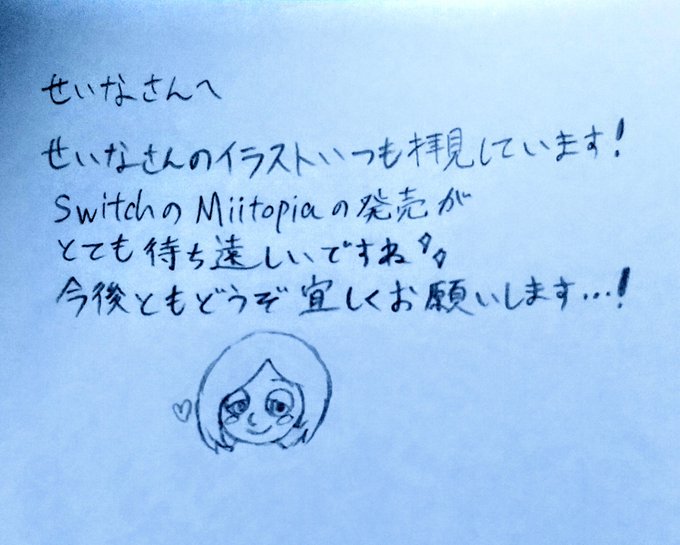 せいなさんへ
せいなさんのイラストいつも拝見しています!
SwitchのMiitopiaの発売が
とても待ち遠しいですね
今後ともどうぞ宜しくお願いします…!